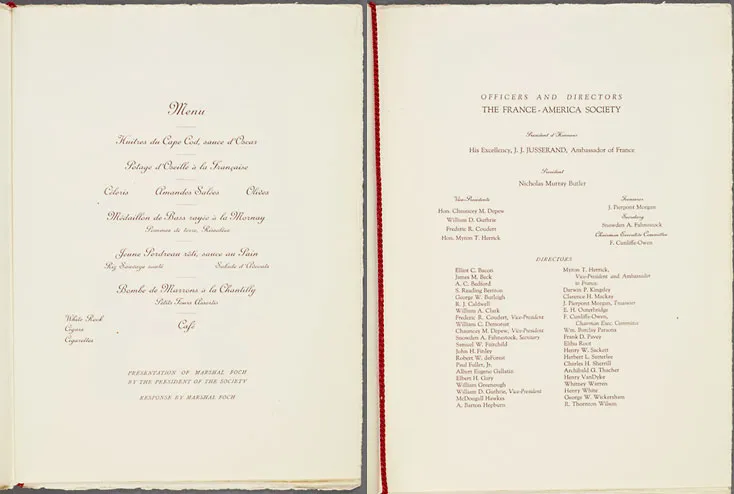 Menu
Huitres du Cape Cod, sauce d'Oscar
Potage d'Oseille à la Française
Céleris Amandes Salées Olives
Médaillon de Bass rayée à la Mornay
Pommes de terre, Rissolées
Jeune Perdreau rôti, sauce au Pain
Riz Sauvage sauté Salade d'Avocats
Bombe de Marrons à la Chantilly
Petits Fours Assortis
Café
White Rock
Cigars
Cigarettes
PRESENTATION OF MARSHAL FOCH
BY THE PRESIDENT OF THE SOCIETY
RESPONSE BY MARSHAL FOCH
OFFICERS AND DIRECTORS
THE FRANCE-AMERICA SOCIETY
President d'Honneur
His Excellency, J. J. JUSSERAND, Ambassador of France
President
Nicholas Murray Butler
Vice-Presidents
Hon. Chauncey M. Depew
William D. Guthrie
Frederic R. Coudert
Hon. Myron T. Herrick
Treasurer
J. Pierpont Morgan
Secretary
Snowden A. Fahnestock
Chairman Executive Committee
F. Cunliffe-Owen
DIRECTORS
Elliot C. Bacon
James M. Beck
A. C. Bedford
S. Reading Bertron
George W. Burleigh
R. J. Caldwell
William A. Clark
Frederic R. Coudert, Vice-President
William C. Demorest
Chauncey M. Depew, Vice-President
Snowden A. Fahnestock, Secretary
Samuel W. Fairchild
John H. Finley
Robert W. deForest
Paul Fuller, Jr.
Albert Eugene Gallatin
Elbert H. Gary
William Greenough
William D. Guthrie, Vice-President
McDougall Hawkes
A. Barton Hepburn
Myron T. Herrick,
Vice-President and Ambassador
to France
Darwin P. Kingsley
Clarence H. Mackay
J. Pierpont Morgan, Treasurer
E. H. Outerbridge
F. Cunliffe-Owen,
Chairman Exec. Committee
Wm. Barclay Parsons
Frank D. Pavey
Elihu Root
Henry W. Sackett
Herbert L. Satterlee
Charles H. Sherrill
Archibald G. Thacher
Henry VanDyke
Whitney Warren
Henry White
George W. Wickersham
R. Thornton Wilson